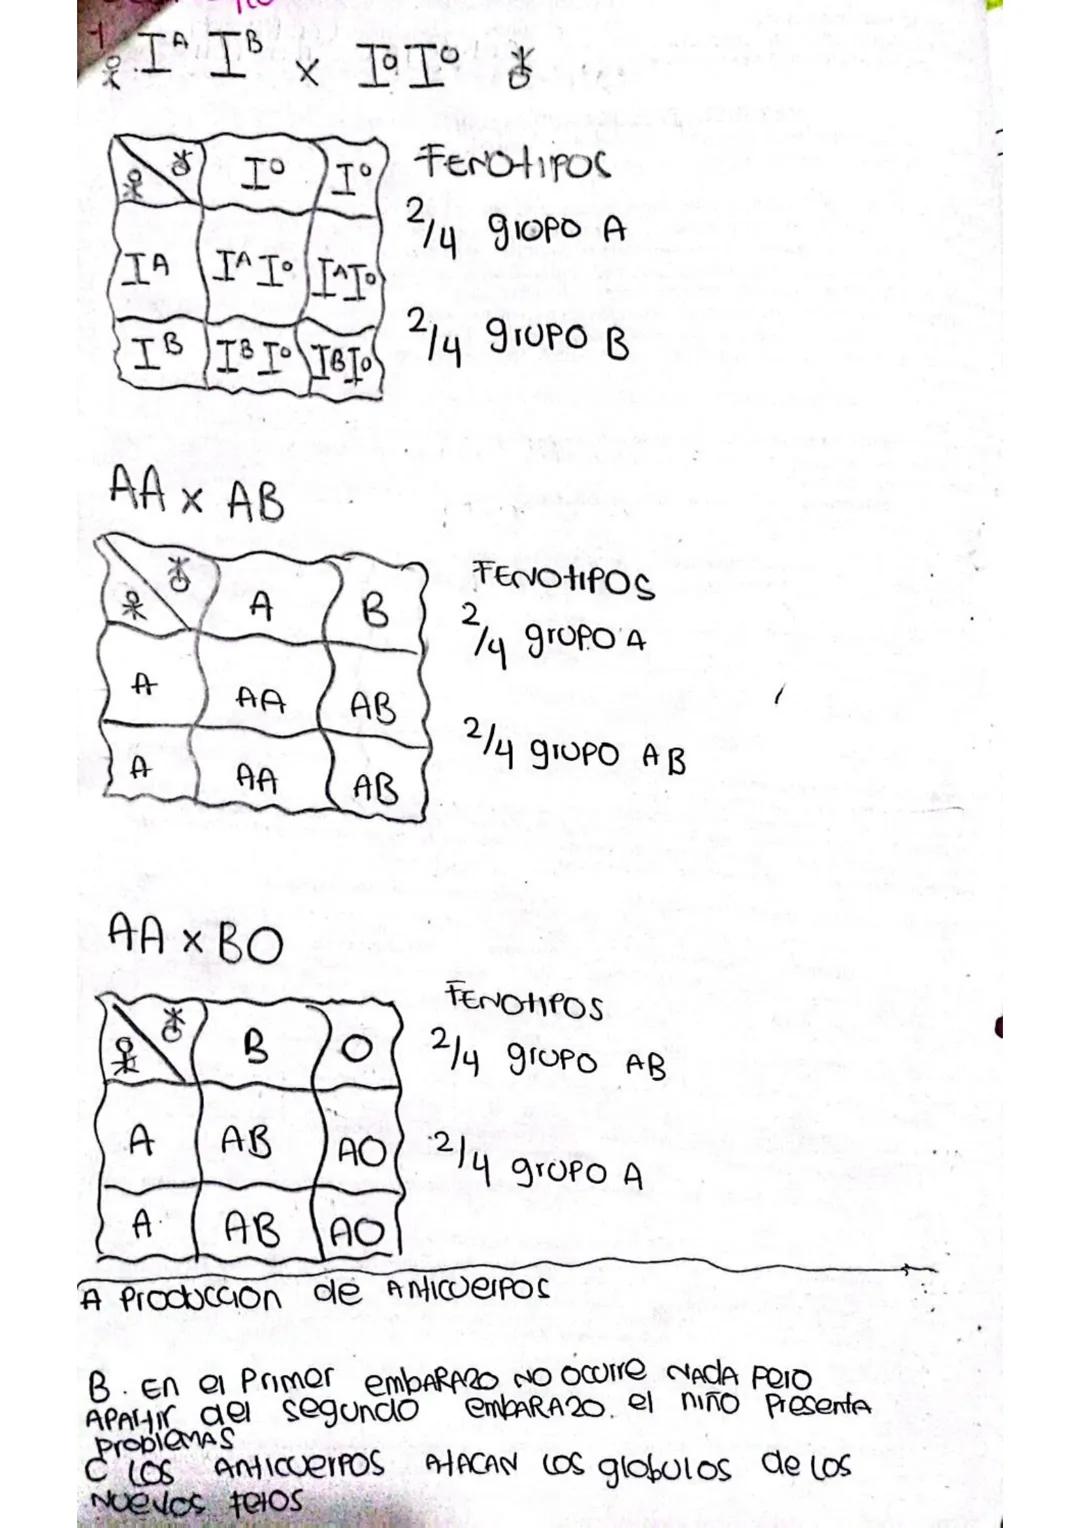 1.
I^A I^B x I^O I^O
I^O I^O
I^A I^A I^O I^A I^O
I^B I^B I^O I^B I^O
FENOtIPOS
2/4 grupo A
2/4 grupo B
AA x AB
A B
A AA AB
A AA AB
FENOtIPOS
2/4 grupo A
2/4 grupo AB
AA x BO
B O
A AB AO
A AB AO
FENOtIPOS
2/4 grupo AB
2/4 grupo A
A Produccion de ANticuerpos
B. EN el Primer embARAzo NO Ocurre NADA Pero
APArtir del segundo embARAzo. el niño Presenta
ProblemAS
C LOS ANticuerpos AtACAN LOS globulos de Los
Nuevos fetos